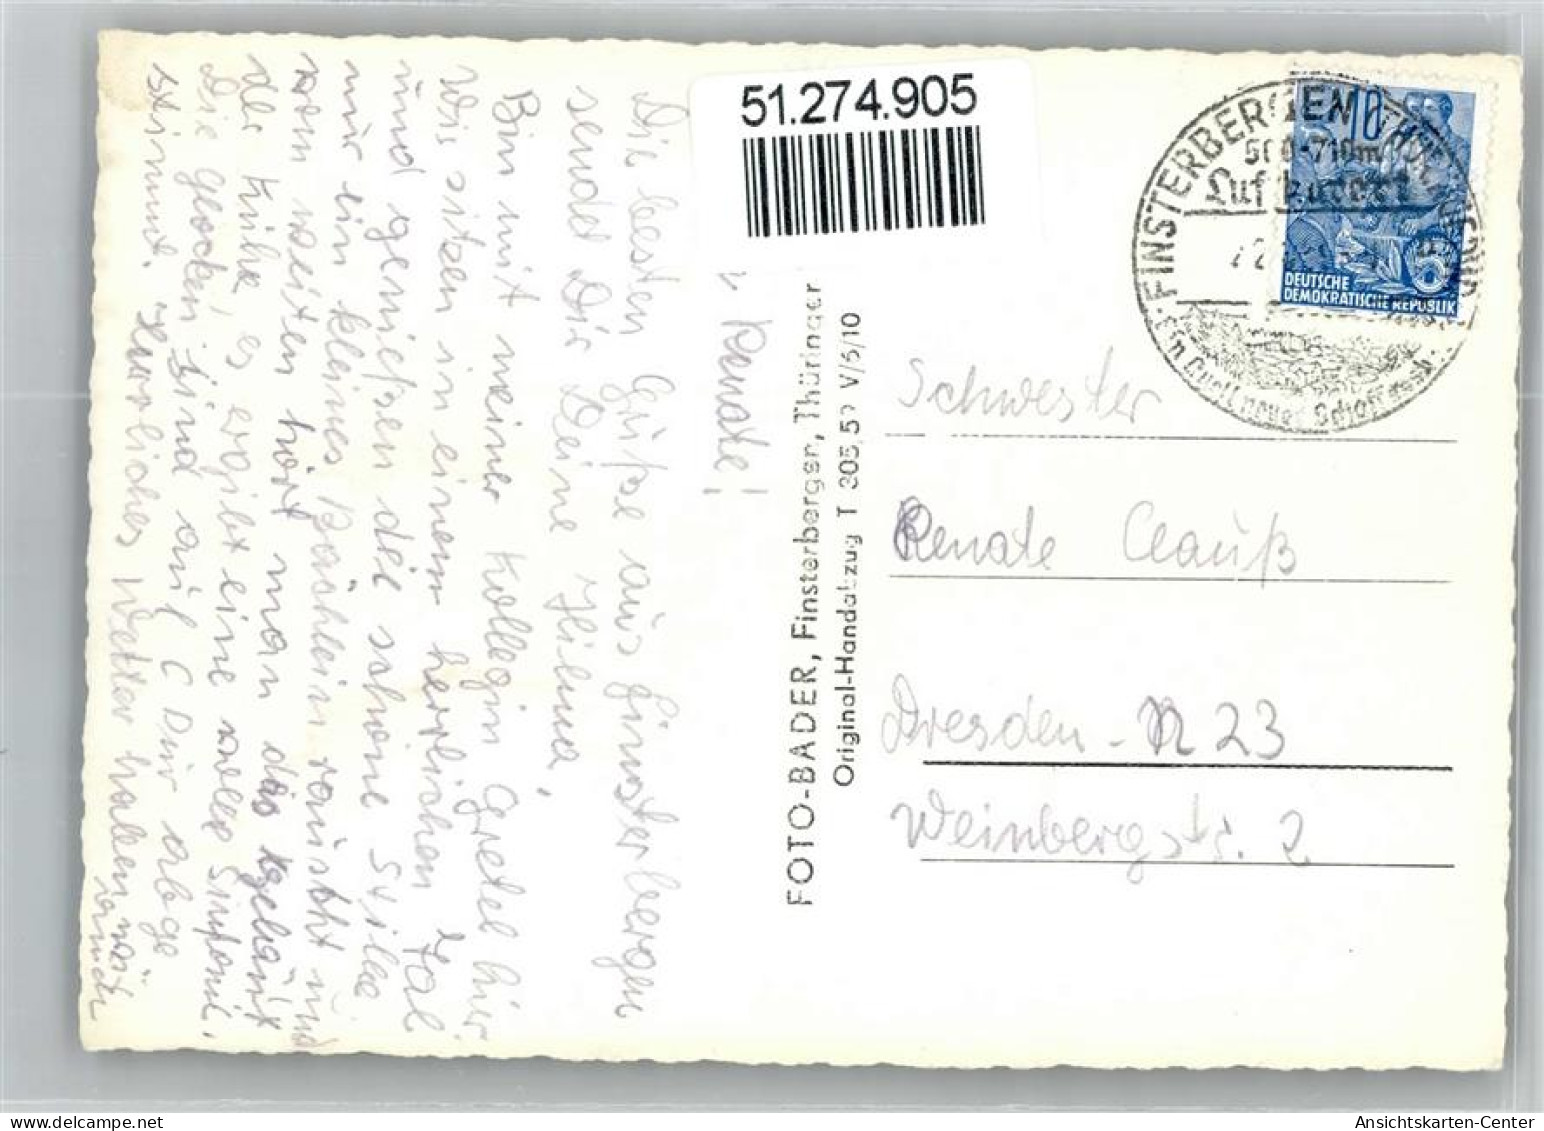 51.274.905
L. Renate!
Die besten Grüße aus Finsterbergen
sendet Dir Deine Hilma,
Bin mit meiner Kollegin Gretel hier
Wir sitzen in einem herrlichen Tal
und genießen die schöne Stille
nur ein kleines Bächlein rauscht und
vom weiten hört man das geläut
der Kühe, es ergibt eine volle Sinfonie,
Die Glocken sind auf C Dur abge
stimmt. Herrliches Wetter haben wir
FOTO-BADER, Finsterbergen, Thüringer
Original-Handabzug T 805/57 V/5/10
FINSTERBERGEN
500-710m
Luftkurort
Ein Quell neuer Schaffens
10
DEUTSCHE
DEMOKRATISCHE REPUBLIK
Schwester
Renate Clauß
Dresden - N 23
Weinbergstr. 2
delcampe.net
Ansichtskarten-Center